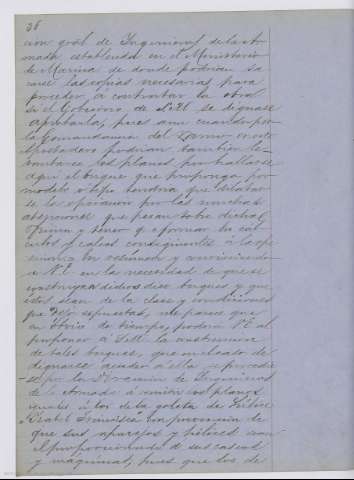 36
cion gral de Ingenieros de la Ar-
mada establecida en el Ministerio
de Marina de donde podrian sa
carse las copias necesarias para
proceder á contratar la obra
si el Gobierno de S.M. se dignase
aprobarla, pues aun cuando por
la Comandancia del Ramo en este
Apostadero podrian tambien le-
vantarse los planos por hallarse
aqui el buque que propongo por
modelo ó tipo tendria que dilatar-
se la operacion por las muchas
atenciones que pesan sobre dicha
oficina y tener que formar los cál
culos y calcas consiguientes á la ope
racion
á V.E. en la necesidad de que se
construyan dichos dos buques y que
estos sean de la clase y condiciones
que dejo espuestas, me parece que
en obvio de tiempo, podria V.E. al
proponer á S.M. la construccion
de tales buques, que en el caso de
dignarse acceder á ella se procedie
se por la Direccion de Ingenieros
de la Armada á remitir los planos
iguales á los de la goleta de hélice
Isabel Francisca con prevencion de
que sus aparejos y hélices sean
proporcionados á sus cascos
y máquinas, pues que los de